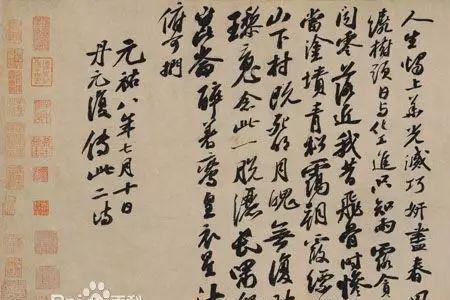 人生燭上華光滅巧妍盡春
繞樹頭日與化工進只知雨露貪
聞零落近我昔飛骨時慘
當塗墳青松靄朝霞縹
山下村既死明月魄無復
瓈魂念此一脫灑長嘯
崑崙醉著鸞皇衣星斗
俯可捫
元祐八年七月十日
丹元復傳此二詩
Bai百科